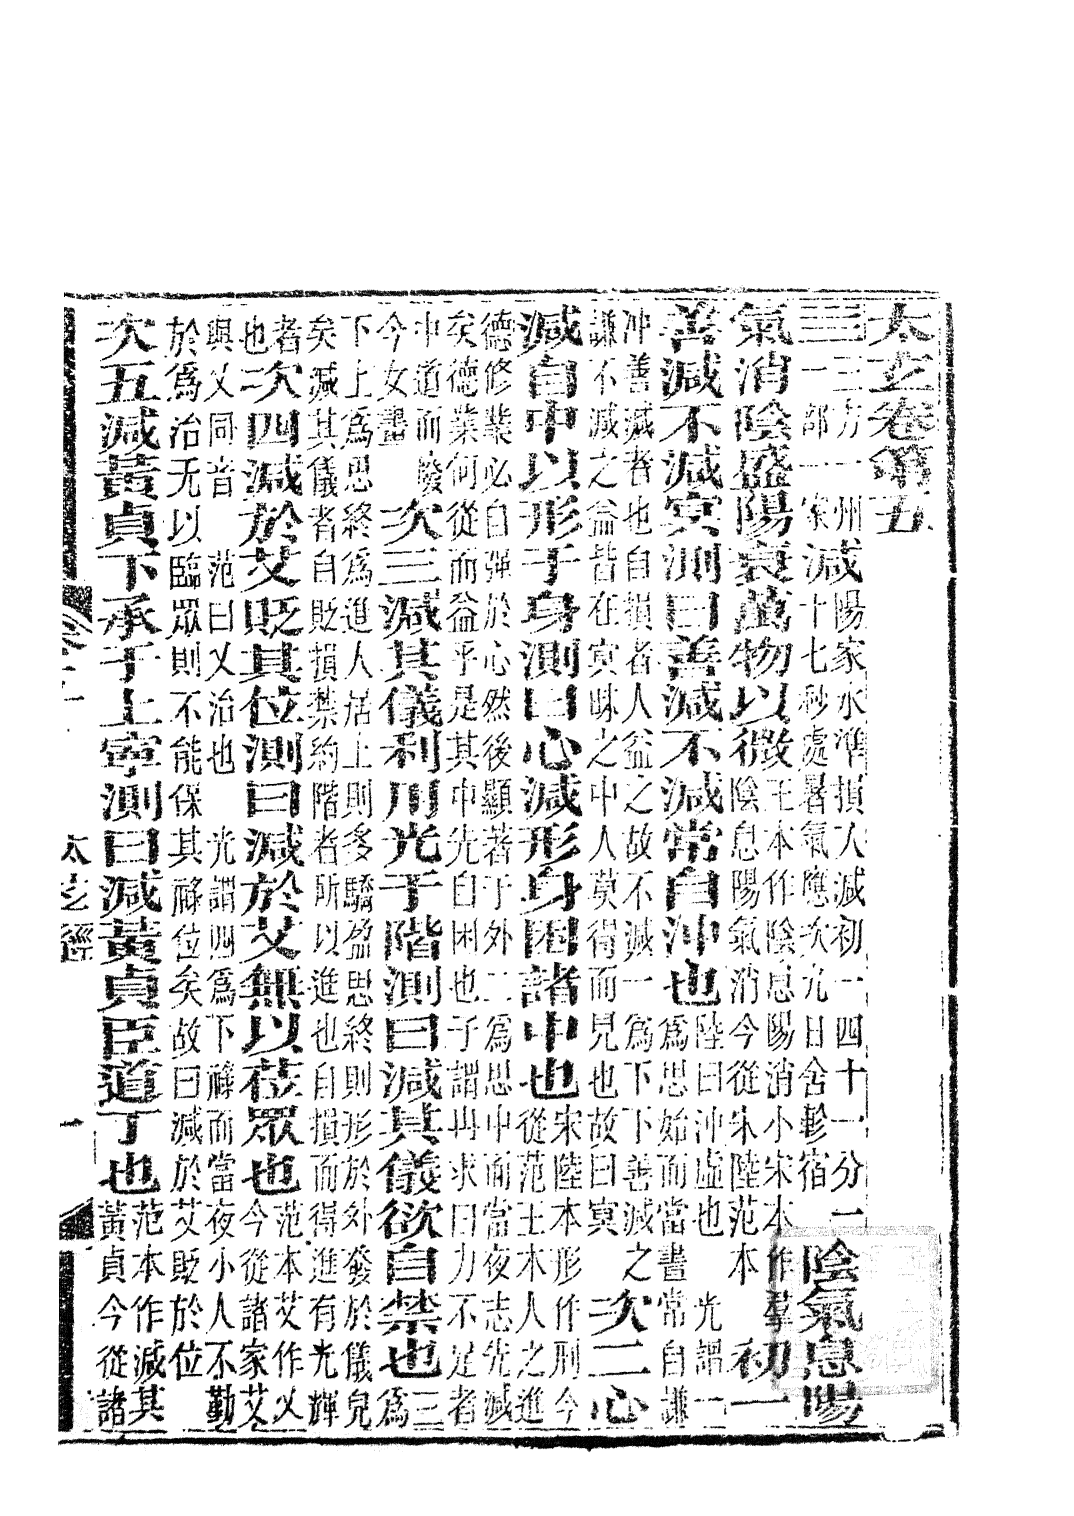 太玄卷第五
三方一州一部一家減陽家水準損入減初一四十一分二十七秒處暑氣應次九日舍軫宿陰氣息陽
氣消陰盛陽衰萬物以微王本作陰息陽消小宋本作羣陰息陽氣消今從宋陸范本初一
善減不減冥測曰善減不減常自沖也陸曰沖虛也光謂一爲思始而當晝常自謙
沖善減者也自損者人益之故不減一爲下下善減之謙不減之益皆在冥昧之中人莫得而見也故曰冥次二心
減自中以形于身測曰心減形身困諸中也宋陸本形作刑今從范王本人之進
德修業必自彊於心然後顯著于外二爲思中而當夜志先減矣德業何從而益乎是其中先自困也子謂冉求曰力不足者
中道而廢今女畫次三減其儀利用光于階測曰減其儀欲自禁也三爲
下上爲思終爲進人居上則多驕盈思終則形於外發於儀皃矣減其儀者自貶損禁約階者所以進也自損而得進有光輝
者也次四減於艾貶其位測曰減於艾無以莅眾也范本艾作乂今從諸家艾
與乂同音范曰乂治也光謂四爲下祿而當夜小人不勤於爲治无以臨眾則不能保其祿位矣故曰減於艾貶於位
次五減黃貞下承于上寧測曰減黃貞臣道丁也范本作減其黃貞今從諸
太玄經
一